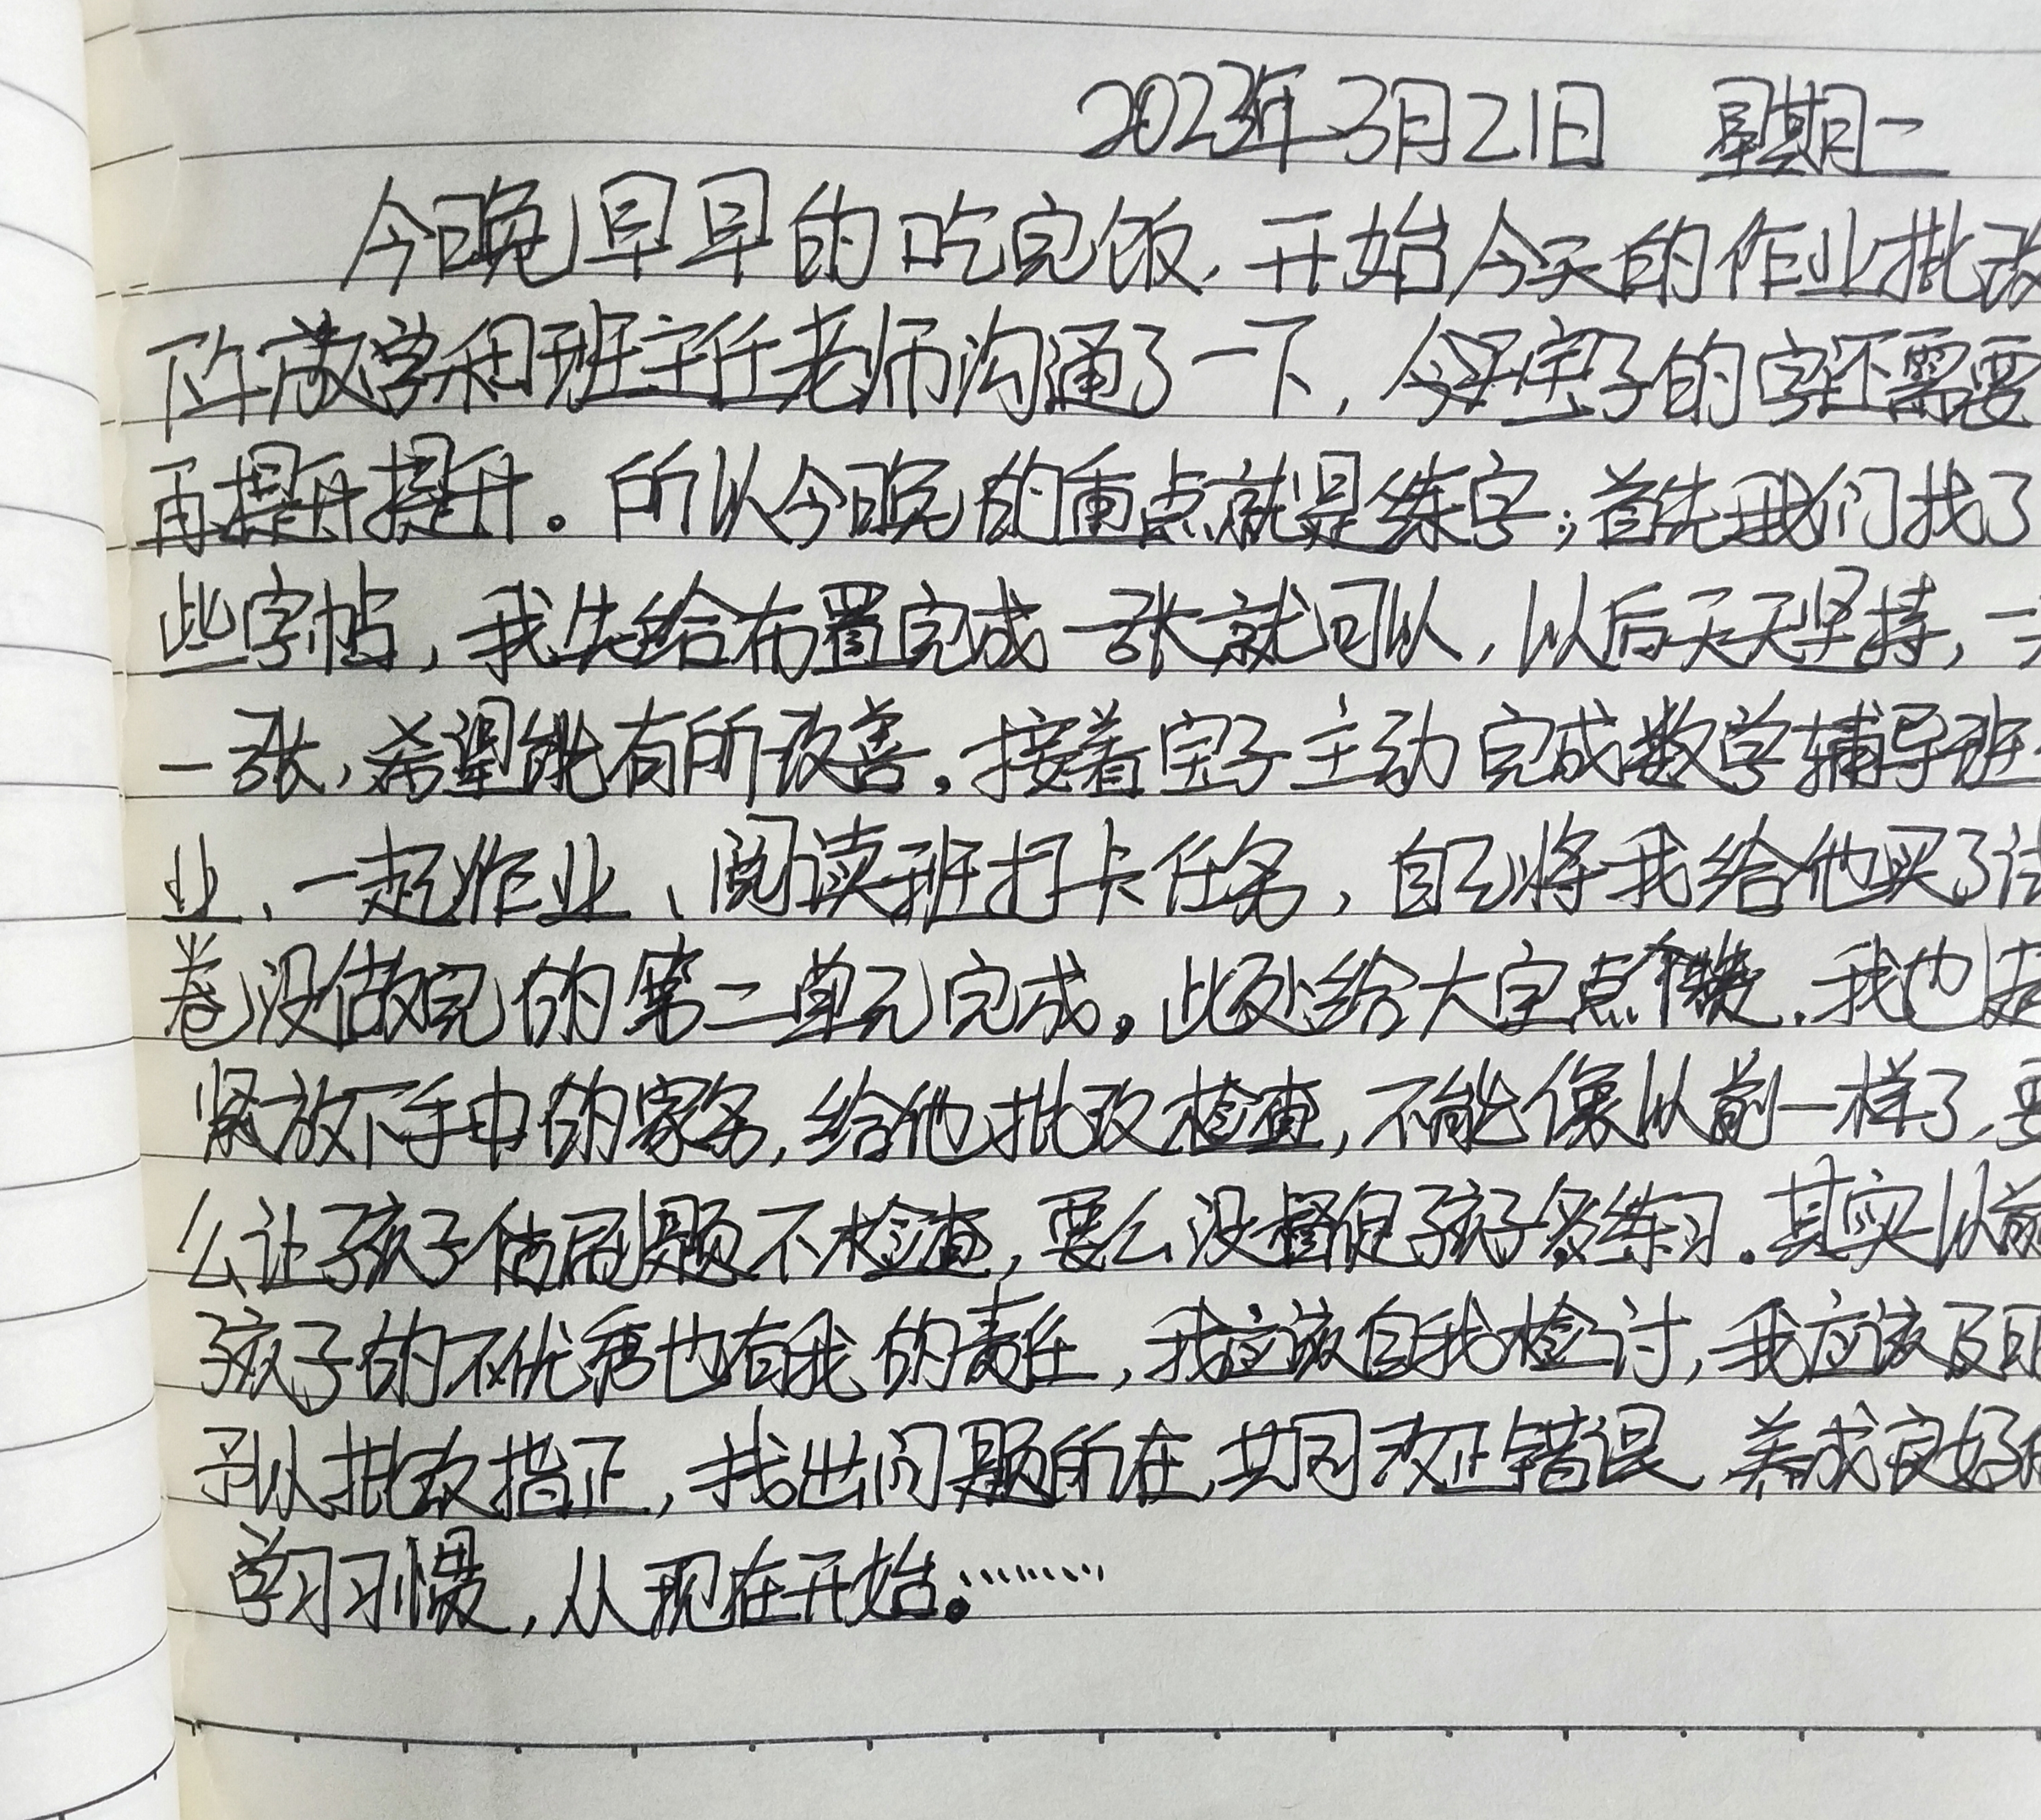 2023年3月21日 星期二
今晚早早的吃完饭,开始今天的作业批改
下午放学和班主任老师沟通了一下,今天宝子的字还需要
再提升提升。所以今晚的重点就是练字;首先我们找了
些字帖,我先给布置完成一张就可以,以后天天坚持,一天
一张,希望能有所改善。接着宝子主动完成数学辅导班
业、一起作业、阅读班打卡任务,自己将我给他买了试
卷没做完的第二单元完成。此处给大宝点个赞.我也赶
紧放下手中的家务,给他批改检查,不能像以前一样了,要
么让孩子估刷题不检查,要么没督促孩子多练习.其实以前
孩子的不优秀也有我的责任,我应该自我检讨,我应该及时
予以批改指正,找出问题所在,共同改正错误 养成良好的
学习习惯,从现在开始。………